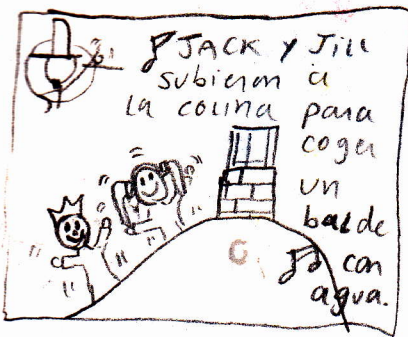 JACK y Jill
subieron a
la colina para
coger
un
balde
con
agua.